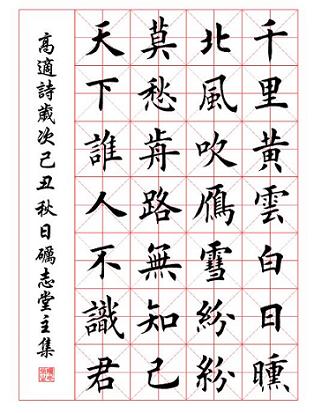 千里黃雲白日曛
北風吹鴈雪紛紛
莫愁歬路無知己
天下誰人不識君
高適詩歲次己丑秋日礪志堂主集